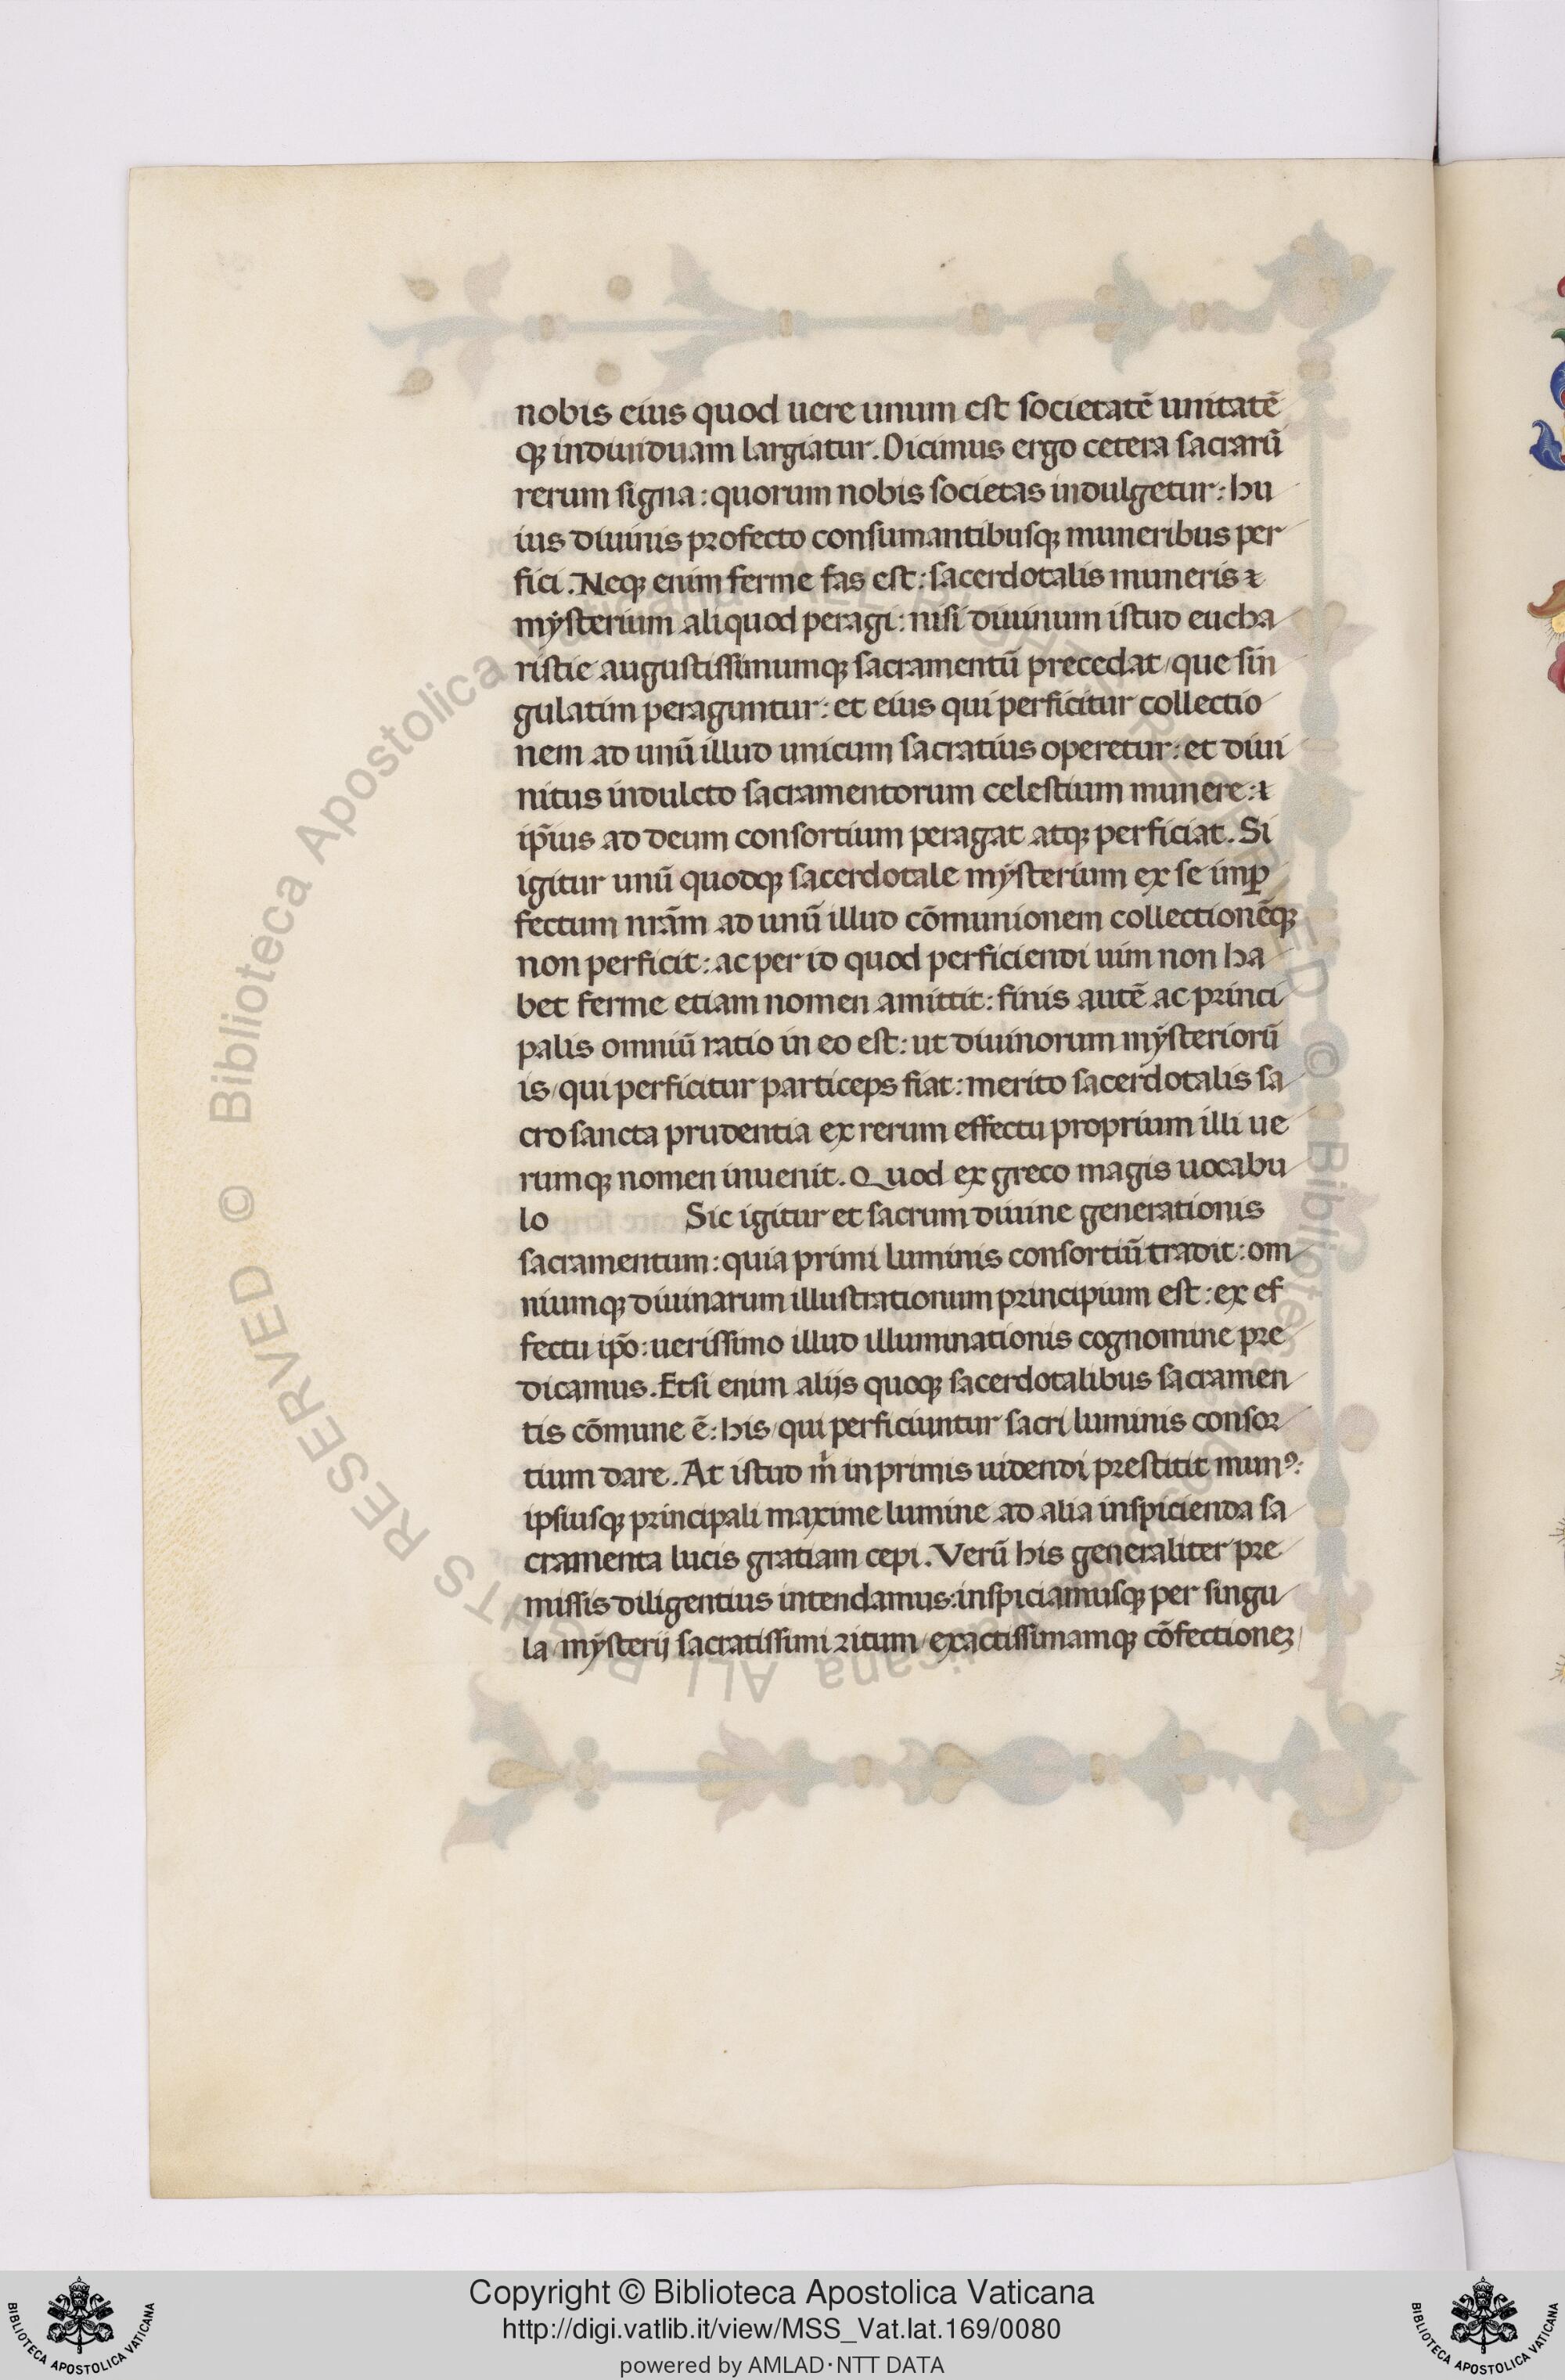 nobis eius quod uere unum est societatē unitatē
q; indiuiduam largiatur. Dicimus ergo cetera sacrarū
rerum signa: quorum nobis societas indulgetur: hu
ius diuinis profecto consumantibusq; muneribus per
fici. Neq; enim ferme fas est: sacerdotalis muneris ⁊
mẏsterium aliquod peragi: nisi diuinum istud eucha
ristie augustissimumq; sacramentū precedat/que sin
gulatim peraguntur: et eius qui perficitur collectio
nem ad unū illud unicum sacratius operetur: et diui
nitus indulcto sacramentorum celestium munere: ⁊
ip̄ius ad deum consortium peragat atq; perficiat. Si
igitur unū quodq; sacerdotale mẏsterium ex se imꝑ
fectum nr̄am ad unū illud cōmunionem collectionēq;
non perficit: ac per id quod perficiendi uim non ha
bet ferme etiam nomen amittit: finis autē ac princi
palis omniū ratio in eo est: ut diuinorum mẏsteriorū
is/qui perficitur particeps fiat: merito sacerdotalis sa
cro sancta prudentia ex rerum effectu proprium illi ue
rumq; nomen inuenit. Quod ex greco magis uocabu
lo Sic igitur et sacrum diuine generationis
sacramentum: quia primi luminis consortiū tradit: om
niumq; diuinarum illustrationum principium est: ex ef
fectu ip̄o: uerissimo illud illuminationis cognomine pre
dicamus. Etsi enim alijs quoq; sacerdotalibus sacramen
tis cōmune ē: his/qui perficiuntur sacri luminis consor
tium dare. At istud m̄ in primis uidendi prestitit munꝰ:
ipsiusq; principali maxime lumine ad alia inspicienda sa
cramenta lucis gratiam cepi. Verū his generaliter pre
missis diligentius intendamus: inspiciamusq; per singu
la/mẏsterij sacratissimi ritum/exactissimamq; cōfectioneꝫ
© Biblioteca Apostolica Vaticana ALL RIGHTS RESERVED © Biblioteca Apostolica Vaticana ALL RIGHTS RESERVED
Copyright © Biblioteca Apostolica Vaticana
http://digi.vatlib.it/view/MSS_Vat.lat.169/0080
powered by AMLAD·NTT DATA
BIBLIOTECA APOSTOLICA VATICANA
BIBLIOTECA APOSTOLICA VATICANA